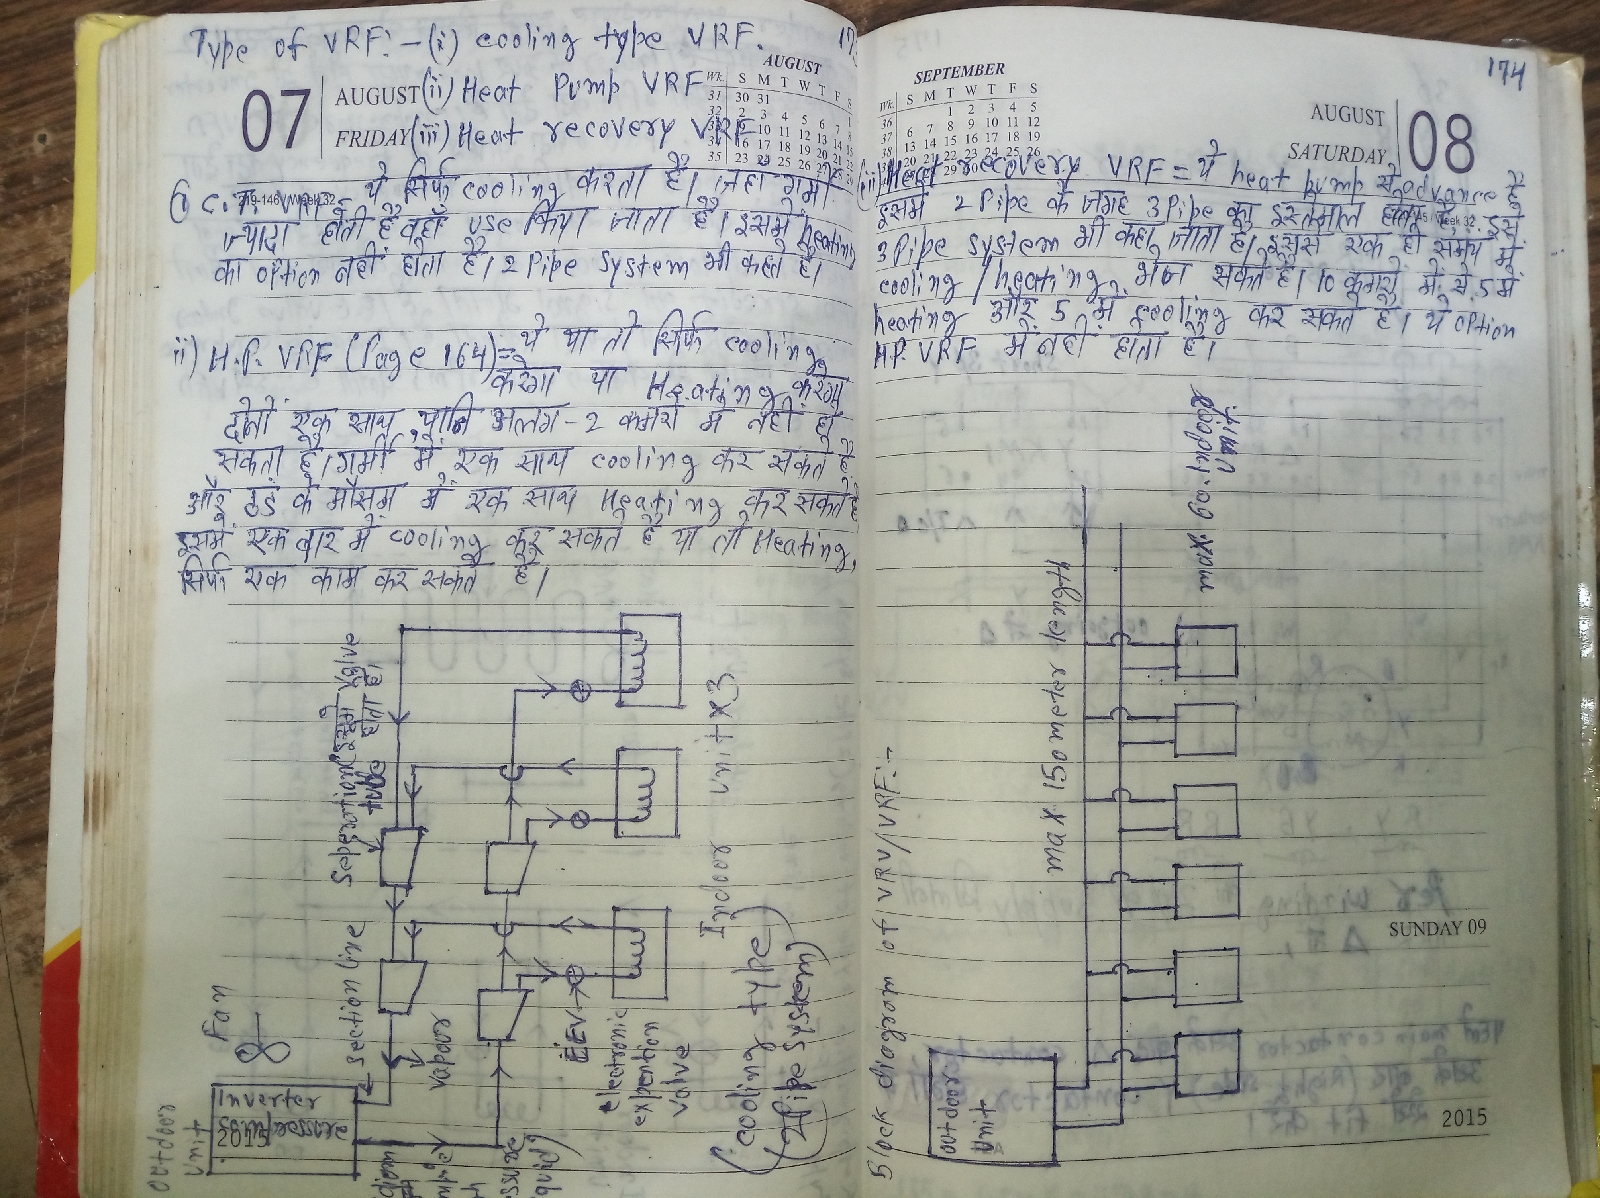 Type of VRF:-(i) cooling type VRF.
07 AUGUST (ii) Heat Pump VRF
FRIDAY (iii) Heat recovery VRF
AUGUST
Wk. S M T W T F S
31 30 31
32 2 3 4 5 6 7
35 23 24 25 26
(i) C.T. VRF - ये सिर्फ cooling करता है। जहा गर्मी
ज्यादा होती है वहाँ use किया जाता है। इसमे heating
का option नहीं होता है। 2 Pipe system भी कहते है।
ii) H.P. VRF (Page 164) = ये या तो सिर्फ cooling
करेगा या Heating करेगा
दोनों एक साथ यानि अलग-2 कमरो में नहीं हो
सकता है। गर्मी में एक साथ cooling कर सकते है
और ठंड के मौसम में एक साथ Heating कर सकते है
इसमें एक बार में cooling कर सकते है या तो Heating,
सिर्फ एक काम कर सकते है।
Seperation tube
इसमे valve
होता है।
Fan
section line
vapour
outdoor
unit
Inverter
2015
EEV
electronic
expention
valve
Indoor unit x3
(cooling type)
(2Pipe system)
174
SEPTEMBER
Wk. S M T W T F S
36 1 2 3 4 5
37 6 7 8 9 10 11 12
13 14 15 16 17 18 19
20 21 22 23 24 25 26
AUGUST
SATURDAY 08
(iii) Heat recovery VRF = ये heat pump से advance है
इसमें 2 Pipe के जगह 3 Pipe का इस्तेमाल होता है, इसे
3 Pipe system भी कहा जाता है। इससे एक ही समय में
cooling / heating भेज सकते है। 10 कमरो में से 5 में
heating और 5 में cooling कर सकते है। ये option
H.P. VRF में नहीं होता है।
Block diagram of VRV/VRF:-
max 150 meter length
max. 60. indoor
Unit
outdoor
Unit
SUNDAY 09
2015